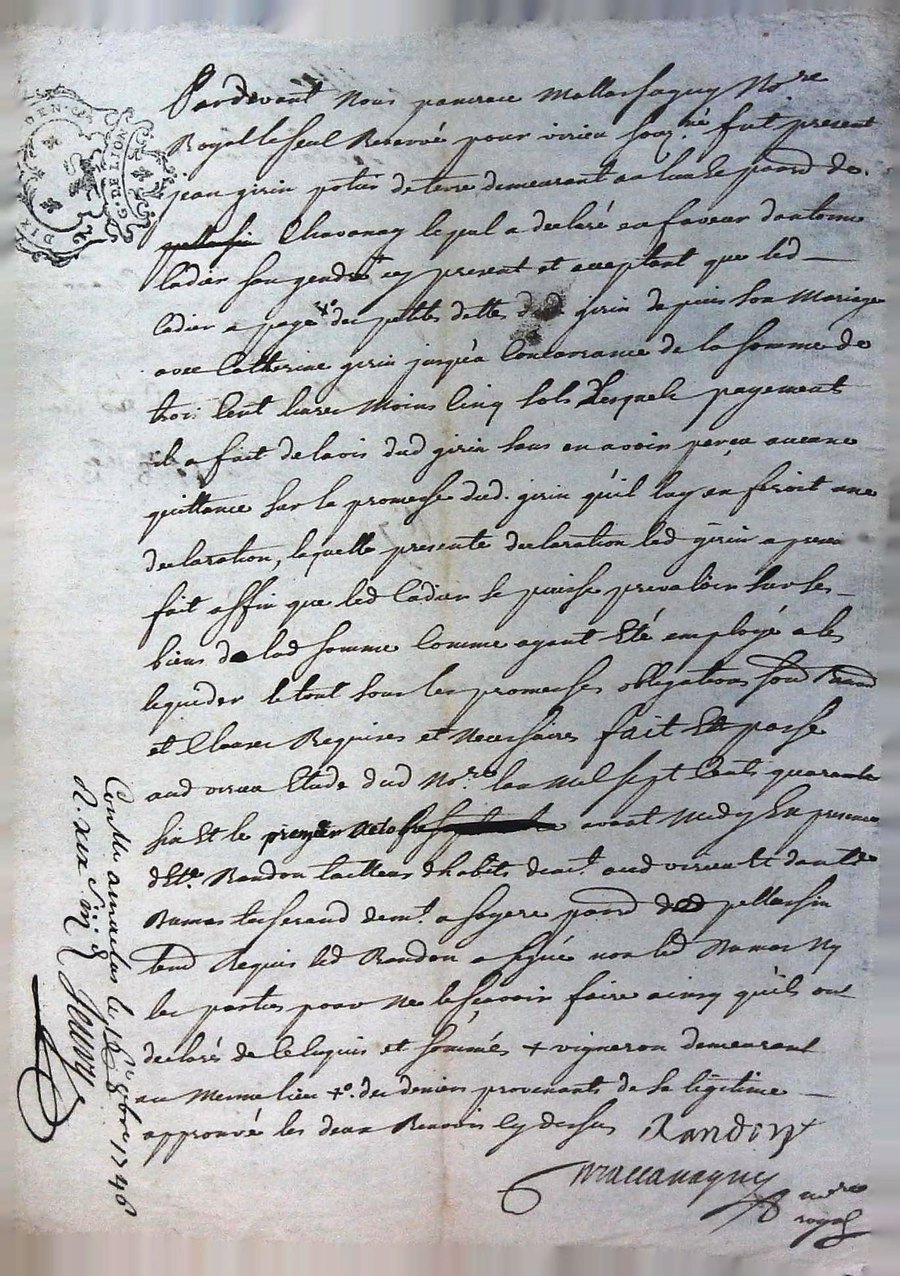 G. DE LION
DIX DEN.
Pardevant Nous pancrace Mallassagny No.re
Royal le seul Reservé pour virieu souz.né fut present
jean girin potier de terre demeurant au lieu le parod de
Chavanay lequel a declaré en faveur dantoine
Cadier son gendre + icy present et acceptant que led
Cadier a payé +o. des petites dettes dud girin depuis son Mariage
avec Catherine girin jusqu'a Concurrance de la somme de
trois Cent livres Moins Cinq sols Lesquels payements
il a fait de lavis dud girin sans en avoir perçu aucune
quittance sur la promesse dud. girin qu'il luy en feroit une
declaration, laquelle presente declaration led girin a
fait affin que led Cadier se puisse prevaloir sur ses
biens de lad somme Comme ayant Eté employé a les
liquider le tout sous les promesses obligations
et Clauses Requises et Necessaires fait Et passé
aud virieu Etude dud No.re lan Mil sept Cents quarante
six Et le premier octobre avant Midy En presence
d'Et.e Randon tailleur d'habits dem.t aud virieu et
Ramas tisserand dem.t a parod de pellussin
Requis led Randon a signé non led Ramas Ny
les parties pour Ne le sçavoir faire ainsy qu'ils ont
declarés de ce Enquis et sommés + vigneron demeurant
au Meme lieu +o. des deniers provenants de sa légitime
approuvé les deux Renvois Cy dessus Randon
Mallassagny no.re
royal
Con.llé a le 8bre 1746
R.